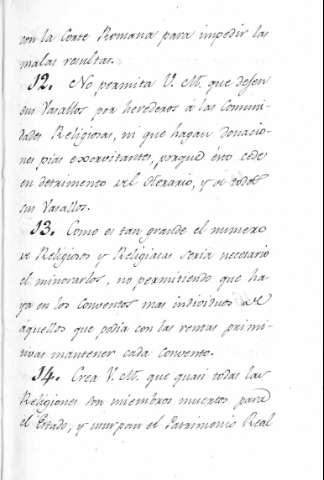 con la Corte Romana para impedir las
malas resultas.
12. No permita V. M. que dejen
sus Vasallos por herederos á las Comuni-
dades Religiosas, ni que hagan donacio-
nes pias exorvitantes, porque esto cede
en detrimento del Herario, y de todos
sus Vasallos.
13. Como es tan grande el numero
de Religiosos y Religiosas seria necesario
el minorarlos, no permitiendo que ha-
ya en los Conventos mas individuos de
aquellos que podia con las rentas primi-
tivas mantener cada Convento.
14. Crea V. M. que quasi todas las
Religiones son miembros muertos para
el Estado, y usurpan el Patrimonio Real